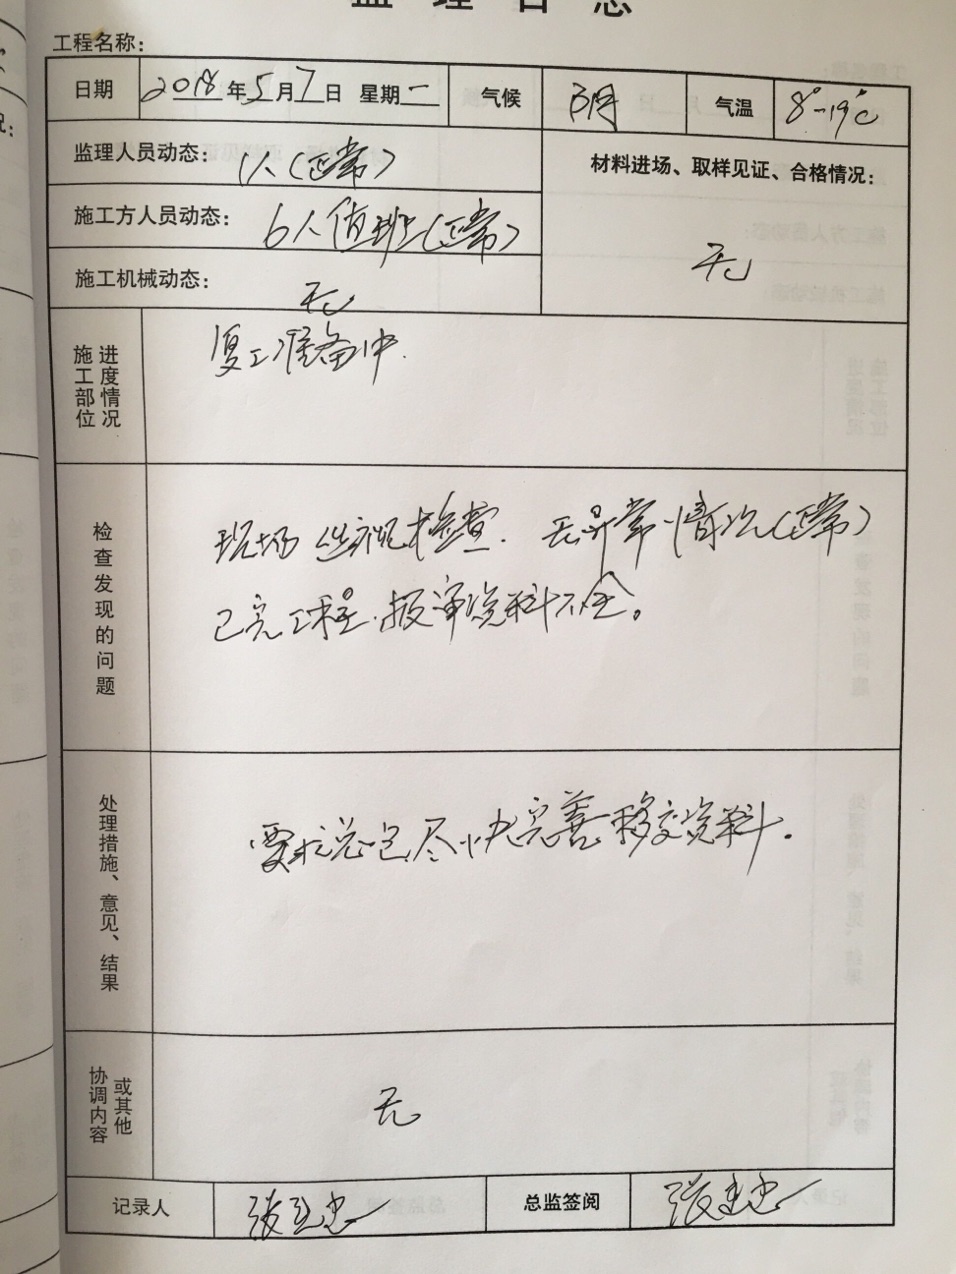 监理日志
工程名称：
日期 2018年5月7日 星期一 气候 阴 气温 8°-19℃
监理人员动态： 1人（正常）
材料进场、取样见证、合格情况：
施工方人员动态： 6人值班（正常）
无
施工机械动态： 无
施工部位进度情况
复工准备中.
检查发现的问题
现场 检查. 无异常情况（正常）
已完工程.报审资料不全。
处理措施、意见、结果
要求总包尽快完善移交资料.
协调内容或其他
无
记录人 总监签阅